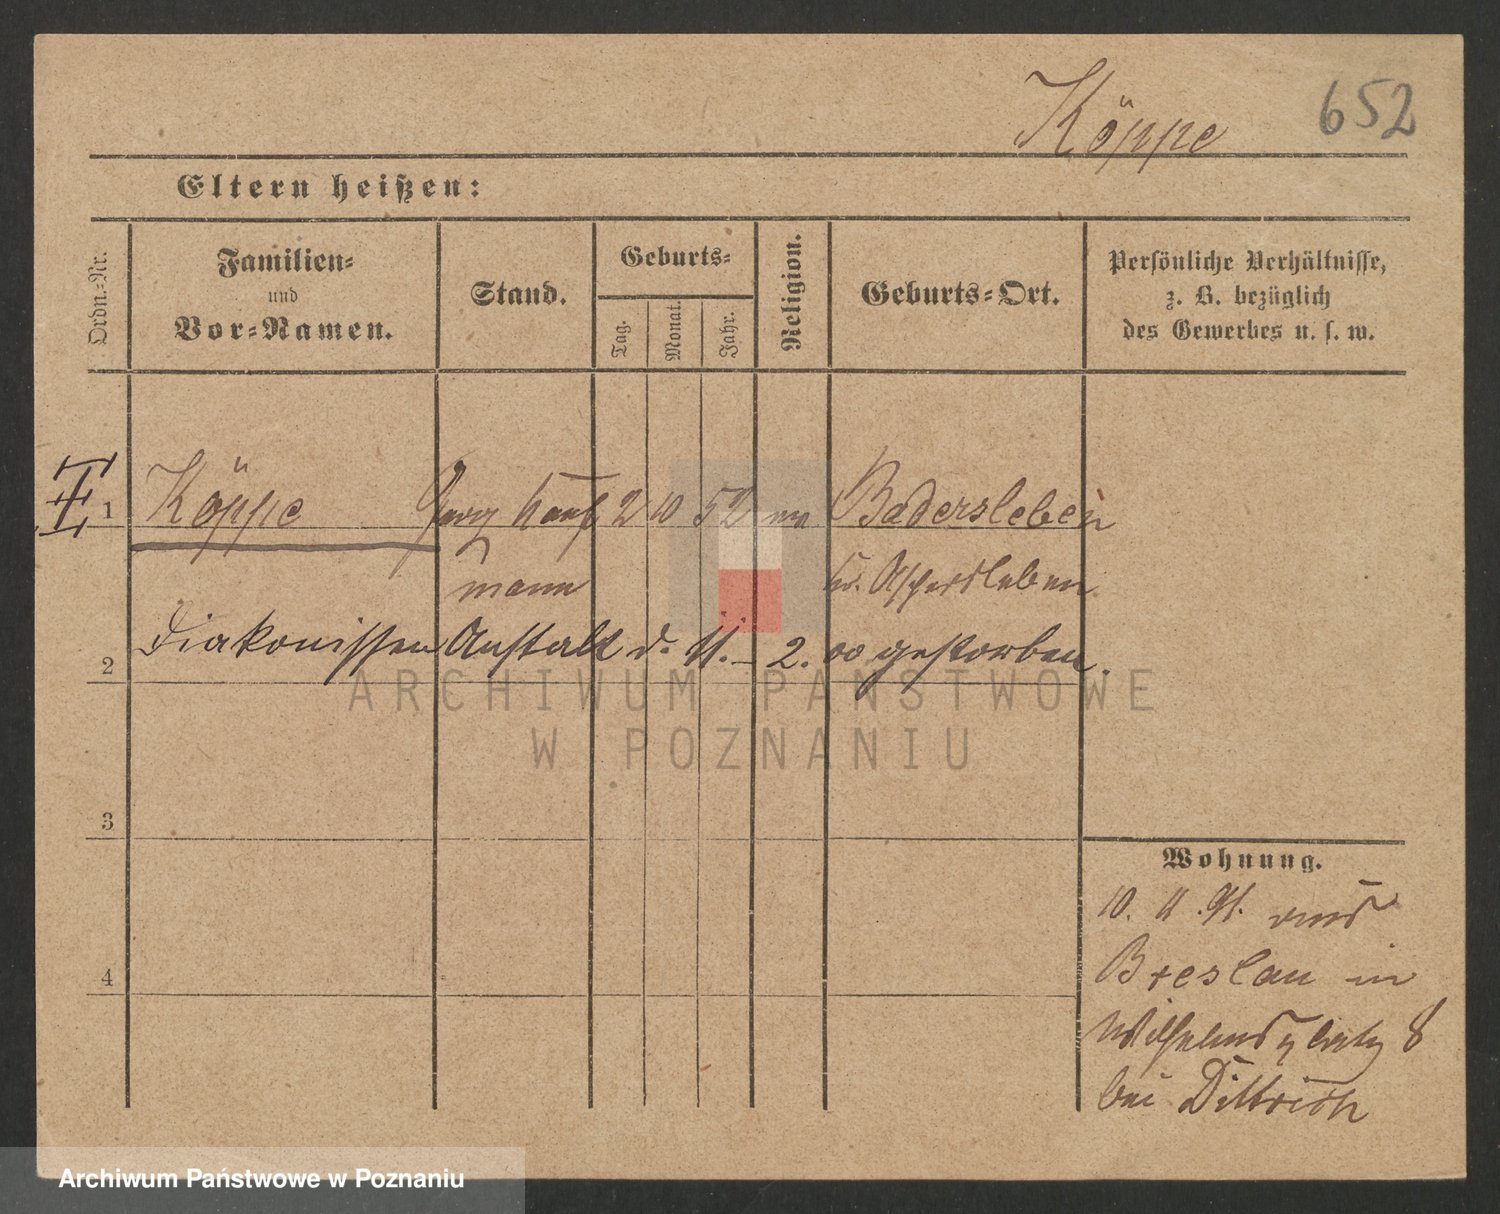 Köppe 652
Eltern heißen:
Ordn.-Nr.
Familien-
und
Vor-Namen.
Stand.
Geburts-
Tag.
Monat.
Jahr.
Religion.
Geburts-Ort.
Persönliche Verhältnisse,
z. B. bezüglich
des Gewerbes u. s. w.
1 Köppe Georg Kauf 2 10 52 Badersleben
mann Aschersleben
2 Diakonissen Anstalt d. 11.-2. 00 gestorben.
3
4
Wohnung.
10. 11. 91. aus
Breslau in
Wilhelmsplatz 8
bei Dittrich
ARCHIWUM PAŃSTWOWE
W POZNANIU
Archiwum Państwowe w Poznaniu